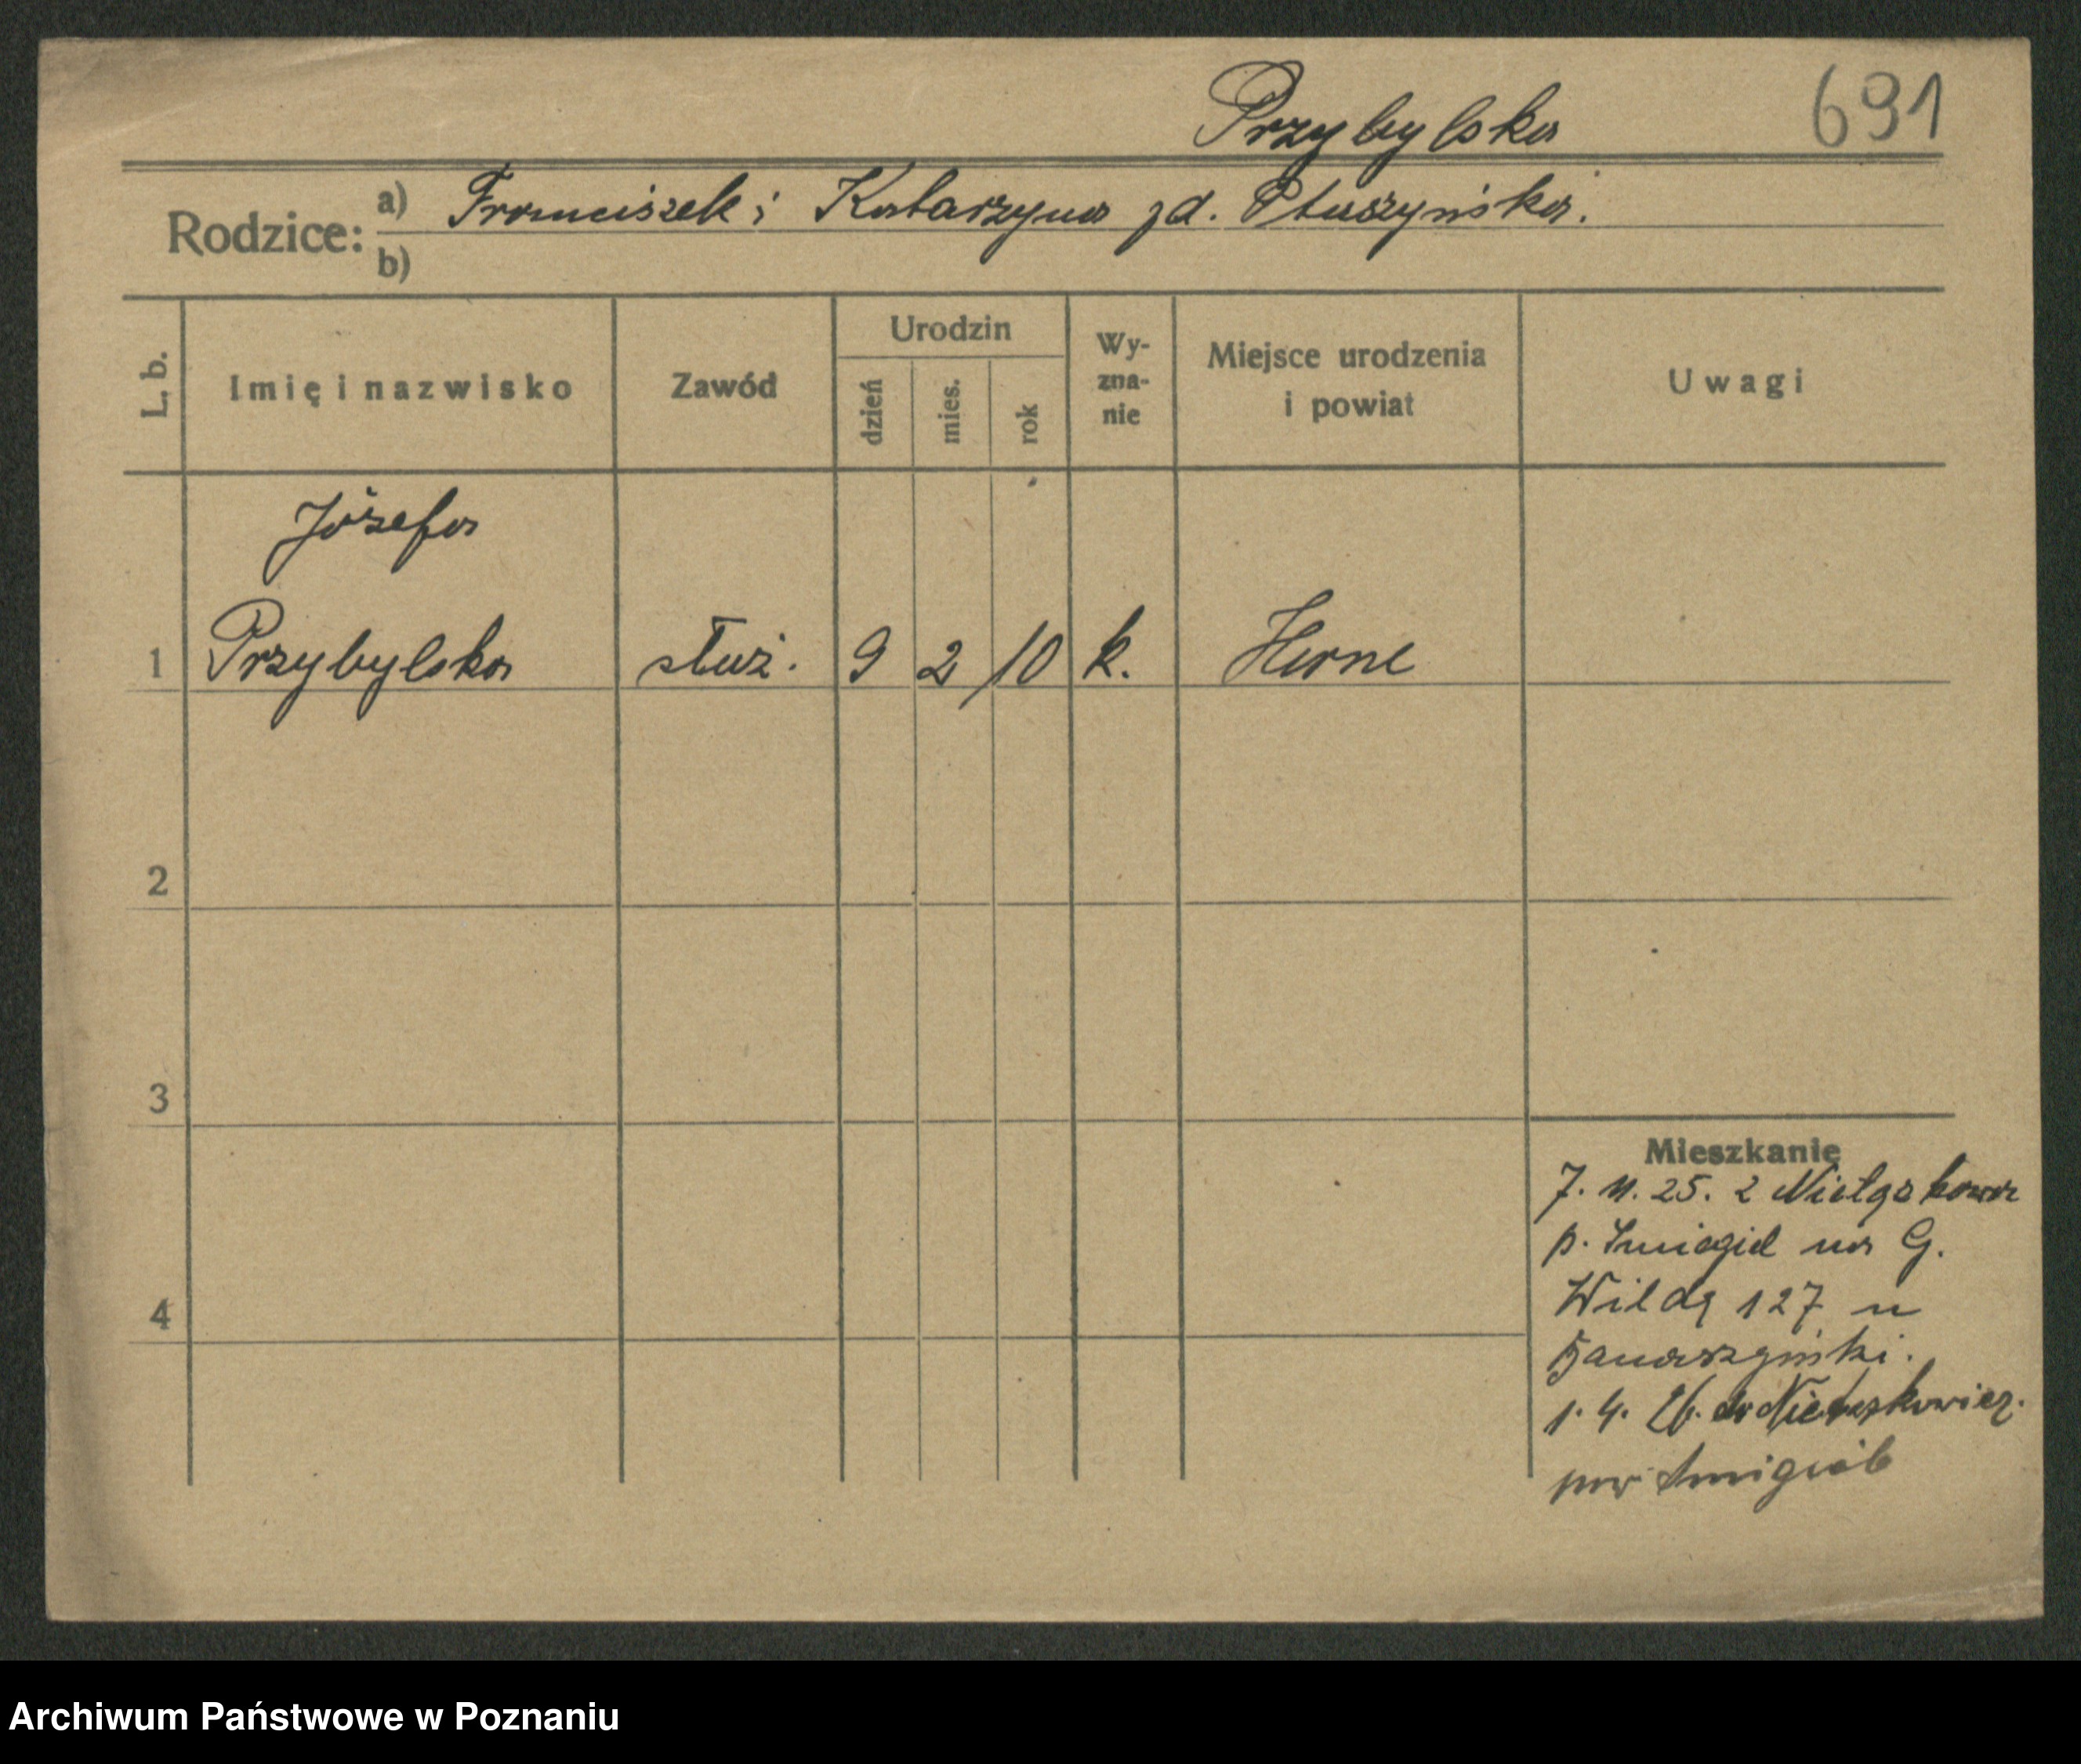 Przybylska 691
Rodzice: a) Franciszek i Katarzyna zd. Ptaszyńska.
b)
L. b. Imię i nazwisko Zawód Urodzin dzień mies. rok Wy-zna-nie Miejsce urodzenia i powiat Uwagi
Józefa
1 Przybylska służ. 9 2 10 k. Herne
2
3
4
Mieszkanie
7. 11. 25. z
p. Śmigiel na G.
Wildę 127 u
1. 4. 26. do
pow
Archiwum Państwowe w Poznaniu